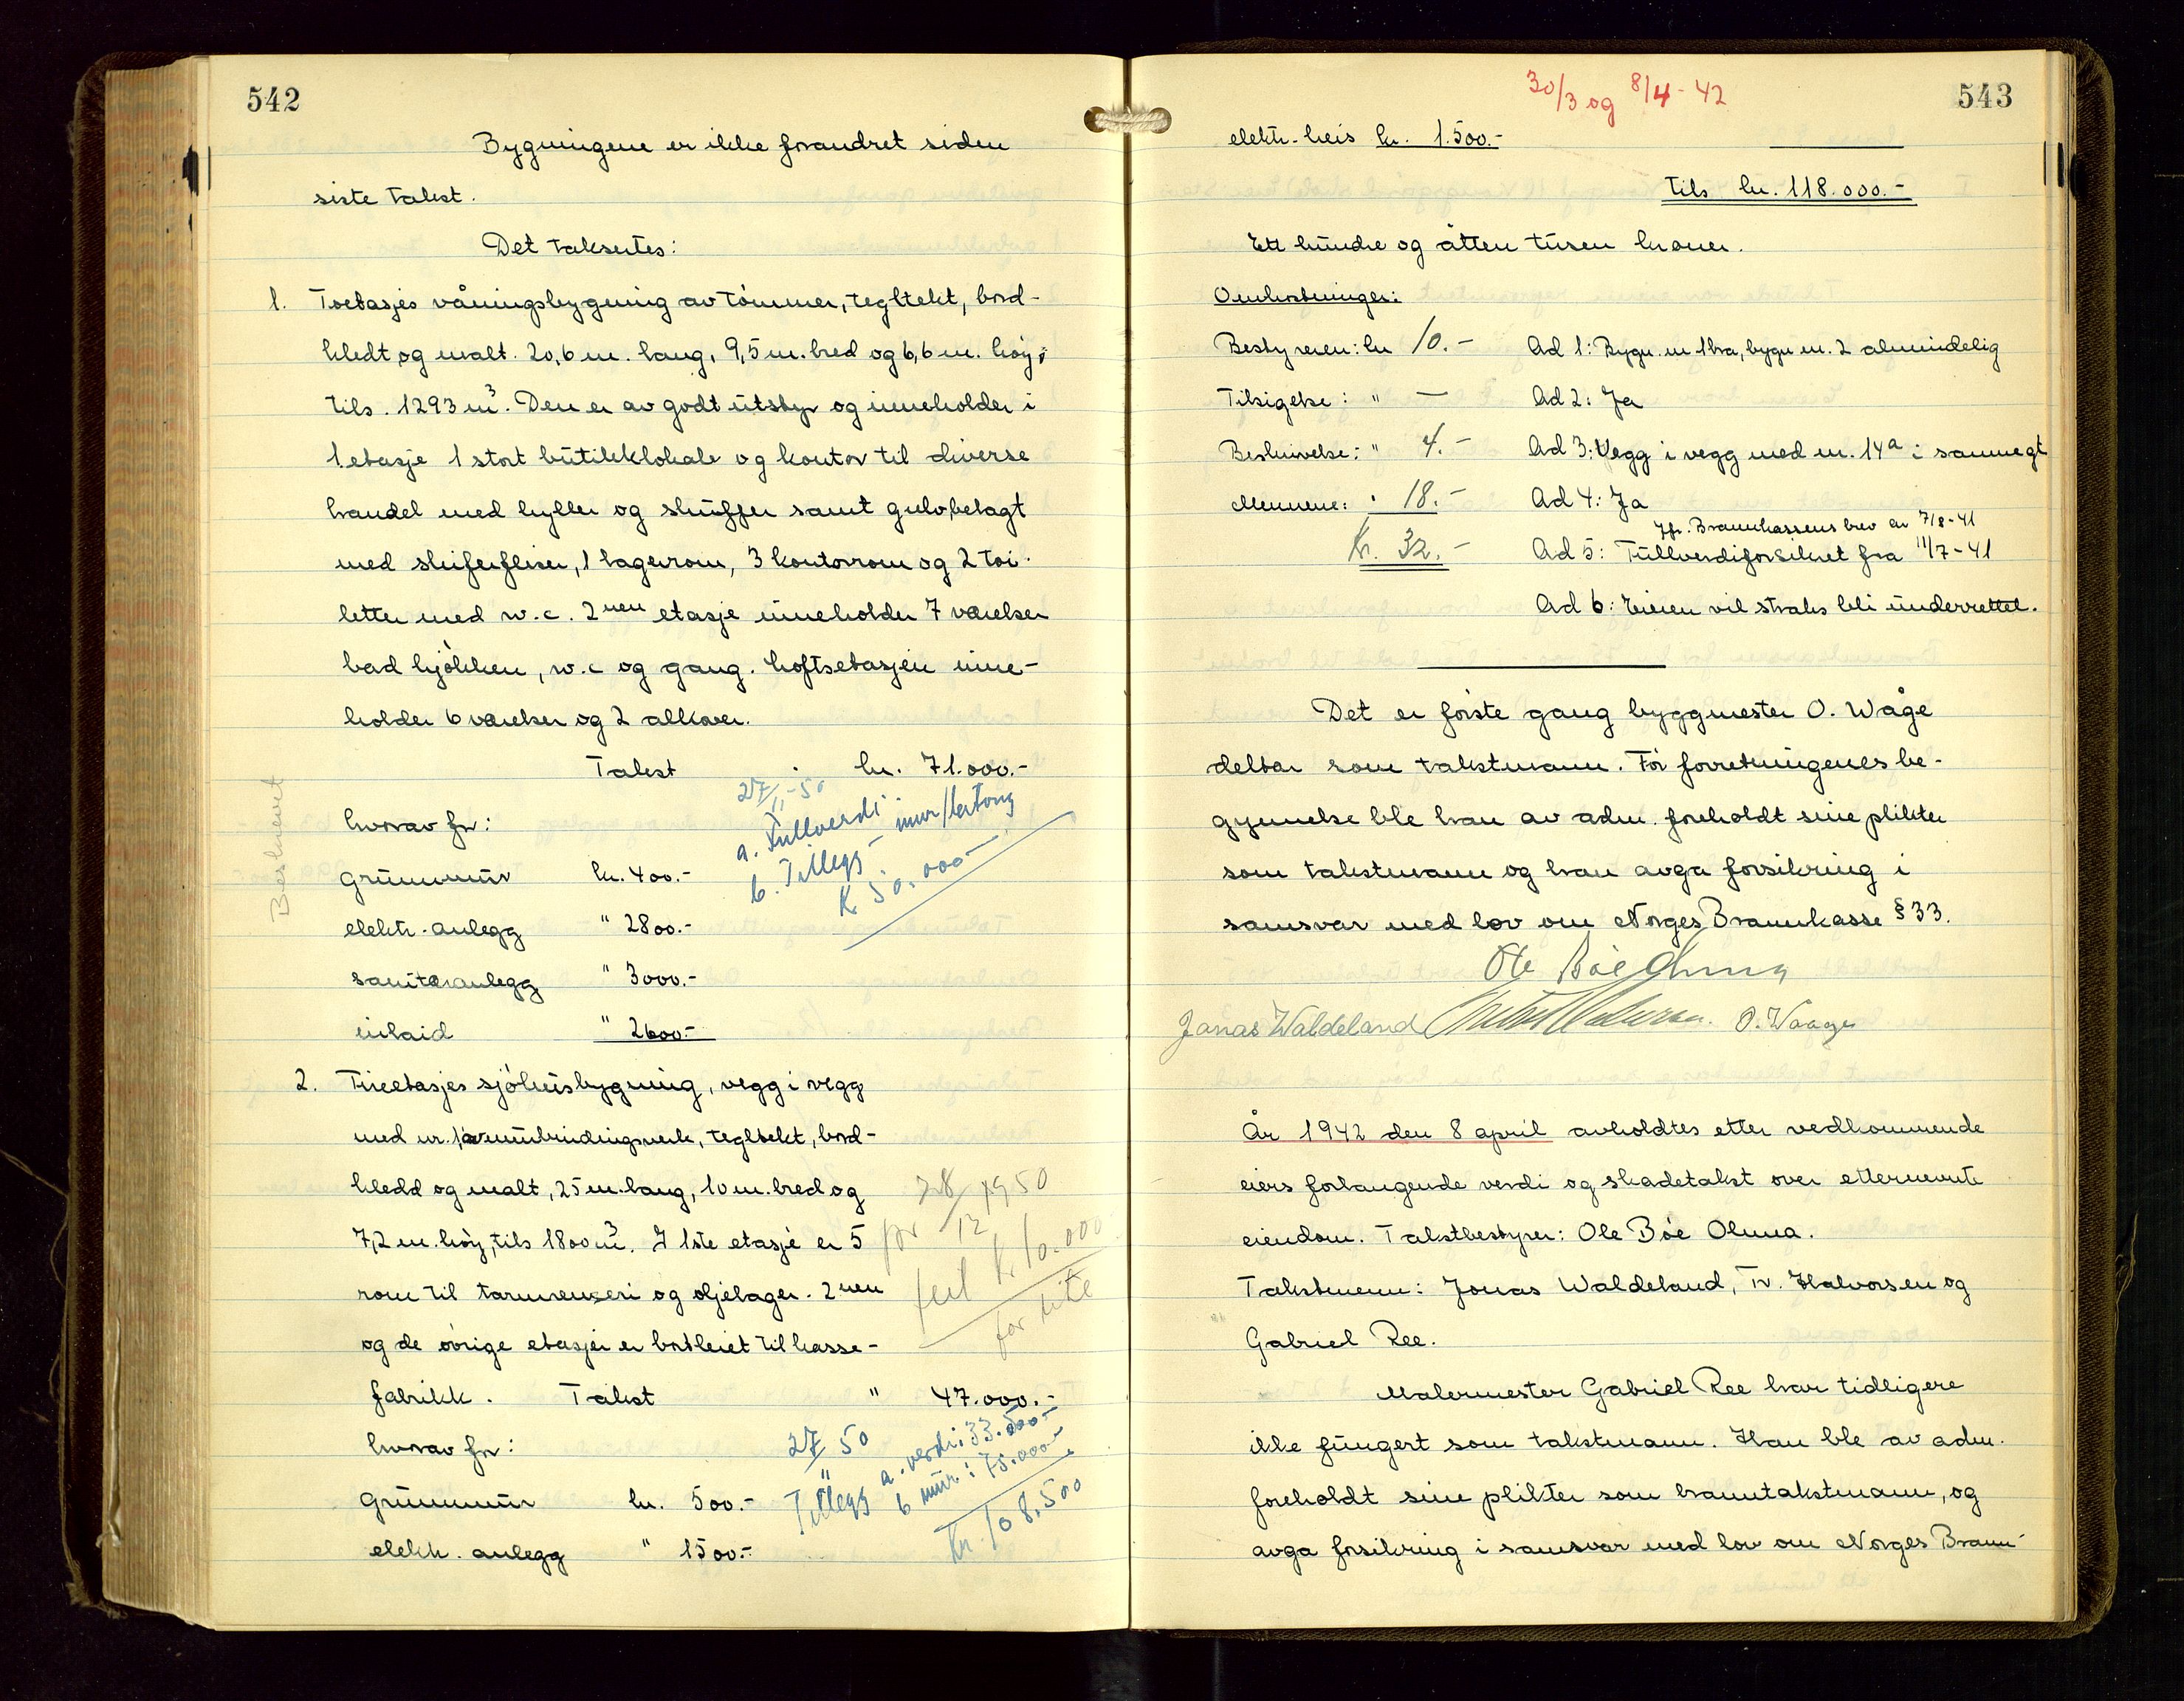 542
Bygningene er ikke forandret siden
siste takst.
Det takseres:
1. Toetasjes våningsbygning av tømmer, tegltekt, bord-
kledt og malt. 20,6 m. lang, 9,5 m. bred og 6,6 m. høy,
tils. 1293 m³. Den er av godt utstyr og inneholder i
1. etasje 1 stort butikklokale og kontor til diverse
handel med hyller og skuffer samt gulv, belagt
med skiferfliser, 1 lagerrom, 3 kontorrom og 2 toi-
letter med w.c. 2nen etasje inneholder 7 værelser
bad kjøkken, w.c og gang. Loftsetasjen inne-
holder 6 værelser og 2 alkover.
Takst kr. 71.000.-
27/11-50
a. Fullverdi
b. Tillegg mur/betong
K. 50.000-
Beskrevet
hvorav for:
Grunnmur kr. 400.-
elektr. anlegg " 2800.-
sanitæranlegg " 3000.-
inlaid " 2600.-
2. Treetasjes sjøhusbygning, vegg i vegg
tegltekt, bord-
kledd og malt, 25 m. lang, 10 m. bred og
7,2 m. høy, tils 1800 m³. I 1ste etasje er 5
rom til tarmrenseri og oljelager. 2nen
og de øvrige etasjer er bortleiet til kasse-
fabrikk. Takst " 47.000.-
28/12 1950
for
feil K. 10.000
for lite
hvorav for:
Grunnmur kr. 500.-
elektr. anlegg " 1500.-
27/11 50
Tillegg a. verdi: 33.500-
b mur: 75.000-
Kr. 108.500
30/3 og 8/4-42
543
elektr. heis kr. 1.500.-
Tils kr. 118.000.-
Ett hundre og atten tusen kroner.
Omkostninger:
Bestyreren: kr 10.- Ad 1: Bygn. nr 1 bra, bygn nr. 2 almindelig
Tilsigelse: " — Ad 2: Ja
Beskrivelse: " 4.- Ad 3: Vegg i vegg med nr. 14a i sammegt
Mennene: " 18.- Ad 4: Ja
Jfr. Brannkassens brev av 7/8-41
Kr. 32.- Ad 5: Fullverdiforsikret fra 11/7-41
Ad 6: Eieren vil straks bli underrettet.
Det er første gang byggmester O. Wåge
deltar som takstmann. Før forretningenes be-
gynnelse ble han av adm. foreholdt sine plikter
som takstmann og han avga forsikring i
samsvar med lov om Norges Brannkasse § 33.
Ole Bøe Olmna
Jonas Waldeland O. Waage
År 1942 den 8 april avholdtes etter vedkommende
eiers forlangende verdi og skadetakst over etternevnte
eiendom. Takstbestyrer: Ole Bøe Olmna.
Takstmenn: Jonas Waldeland, Tr. Halvorsen og
Gabriel Ree.
Malermester Gabriel Ree har tidligere
ikke fungert som takstmann. Han ble av adm.
foreholdt sine plikter som branntakstmann, og
avga forsikring i samsvar med lov om Norges Brann-